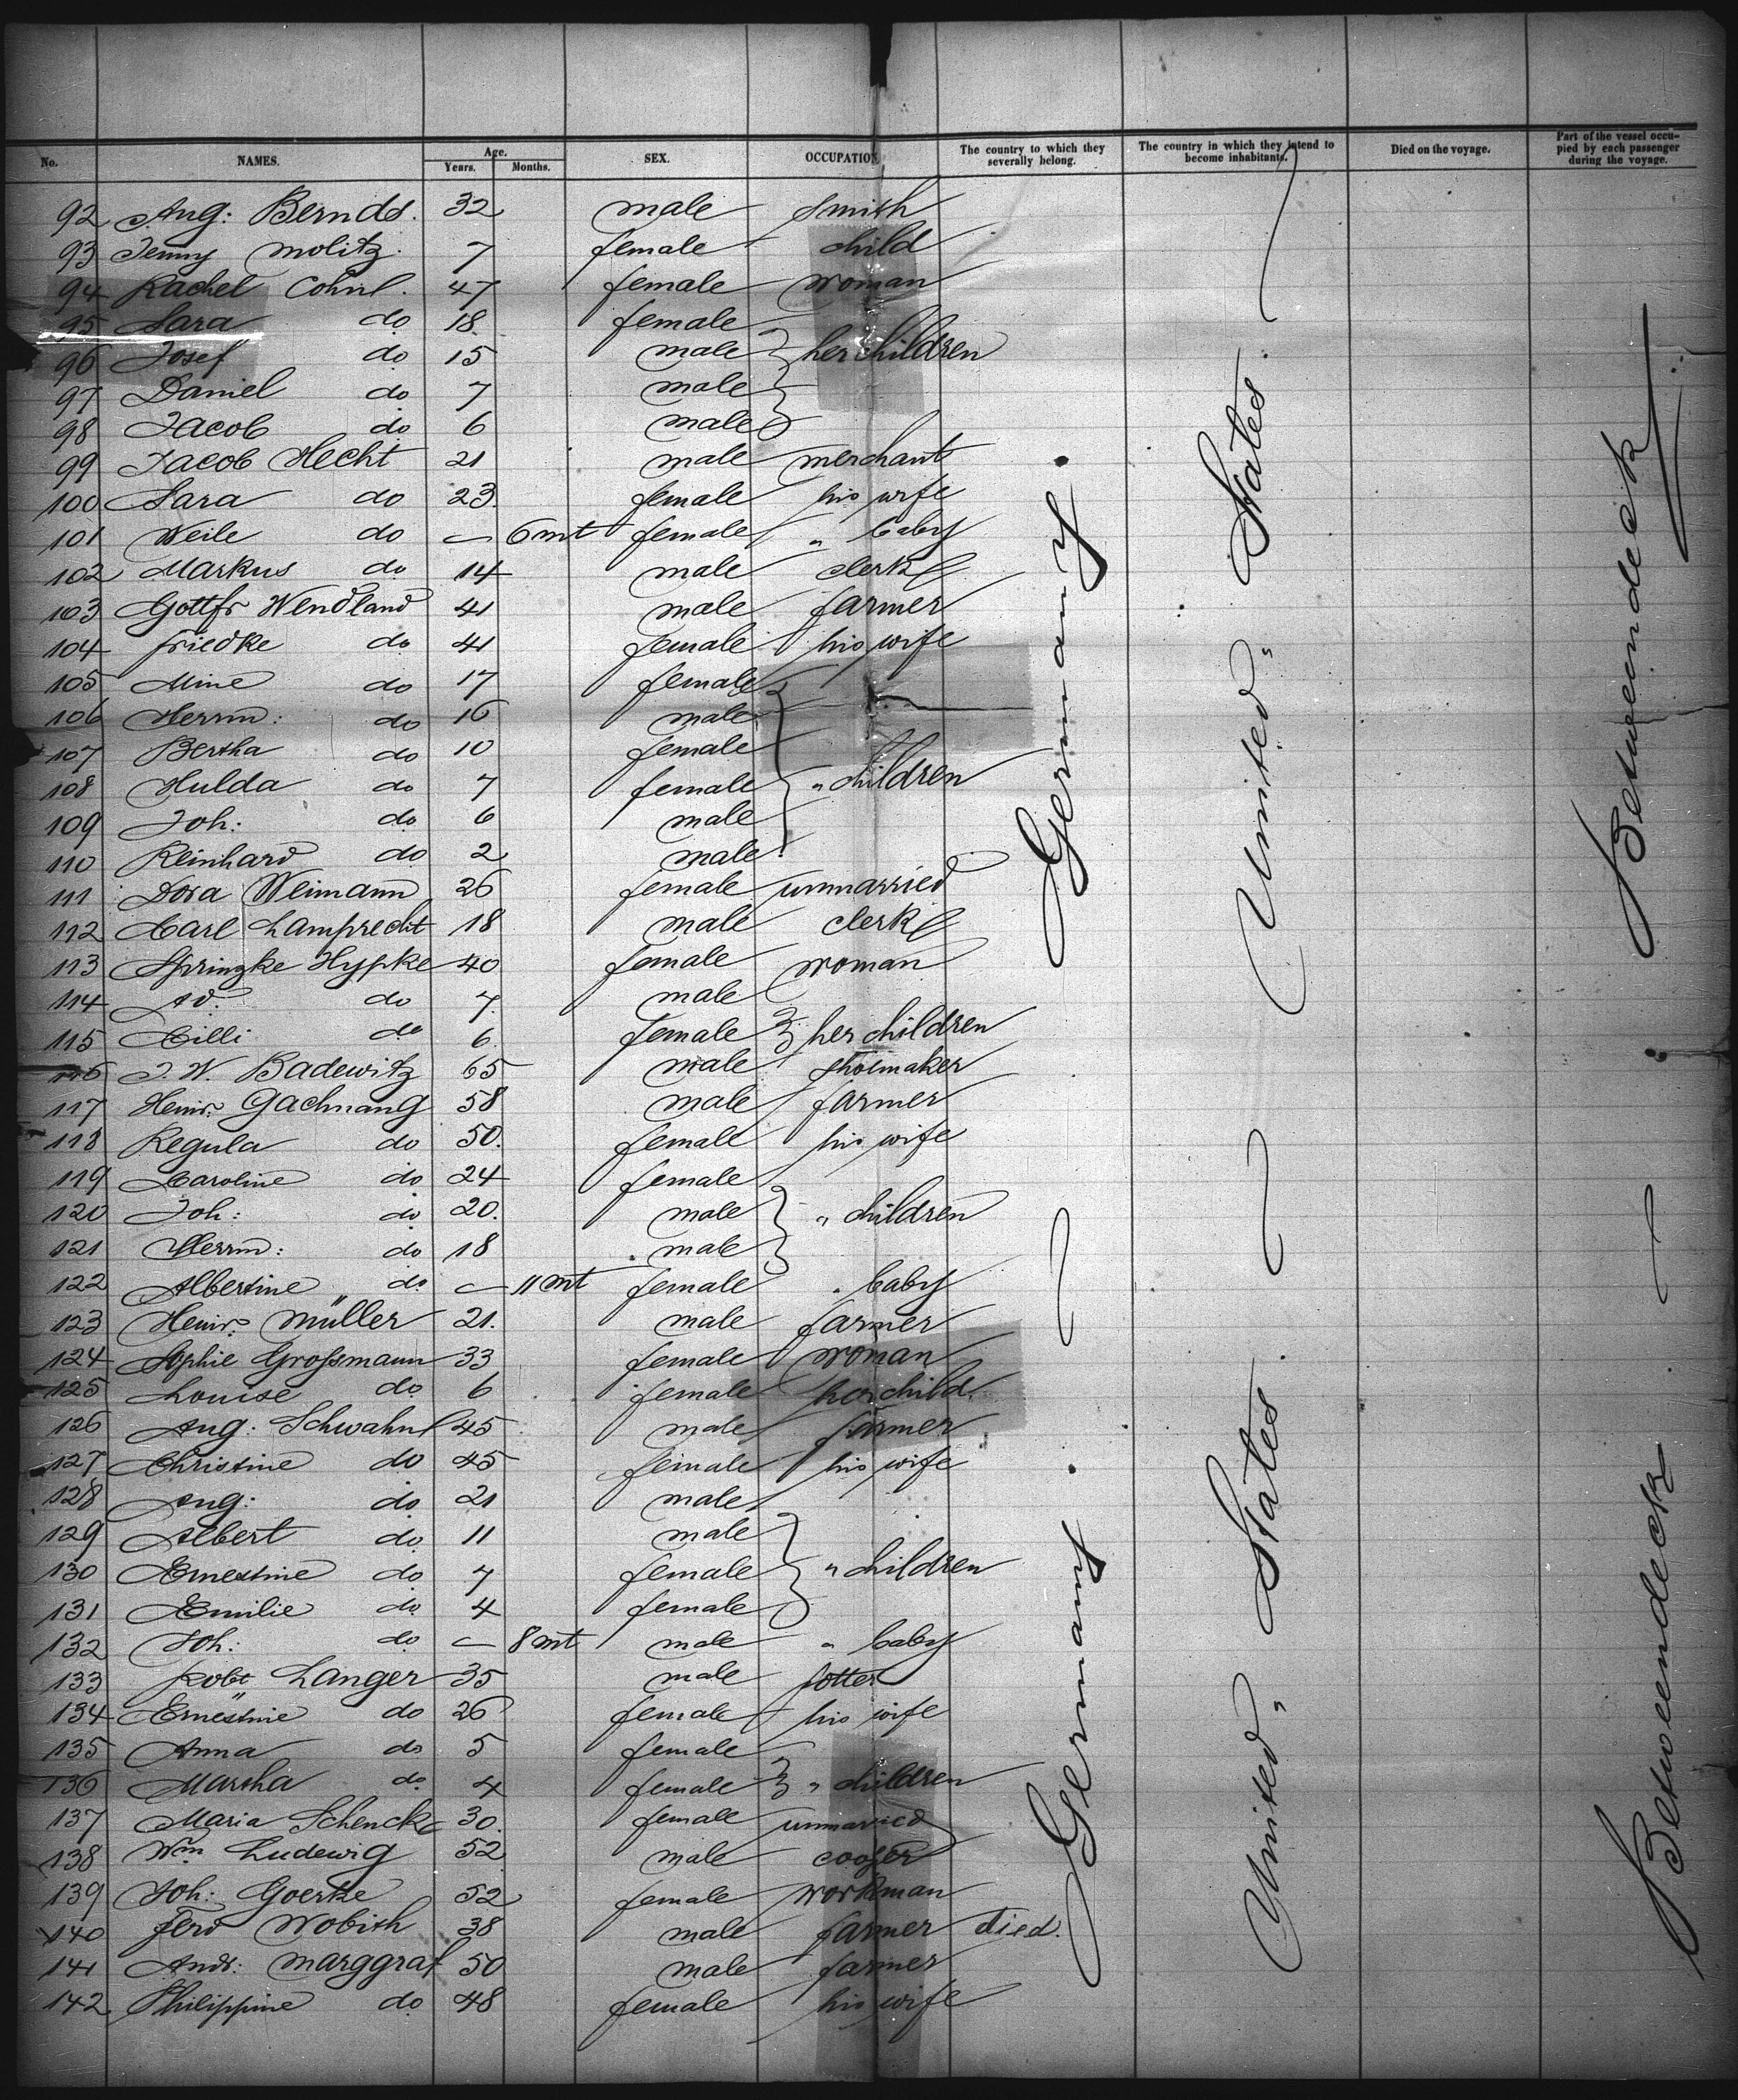 No. NAMES. Age. Years. Months. SEX. OCCUPATION The country to which they severally belong. The country in which they intend to become inhabitants. Died on the voyage. Part of the vessel occupied by each passenger during the voyage.
92 Aug: Bernds. 32 male smith
93 Jenny Molitz. 7 female child
94 Rachel Cohnl. 47 female woman
95 Sara do 18 female
96 Josef do 15 male her children
97 Daniel do 7 male
98 Jacob do 6 male
99 Jacob Hecht 21 male merchant
100 Sara do 23 female his wife
101 Weile do — 6 mt female " baby
102 Markus do 14 male clerk
103 Gottfr Wendland 41 male farmer
104 Friedke do 41 female his wife
105 Mine do 17 female
106 Herrm: do 16 male
107 Bertha do 10 female
108 Hulda do 7 female " children
109 Joh: do 6 male
110 Reinhard do 2 male
111 Dora Weimann 26 female unmarried
112 Carl Lamprecht 18 male clerk
113 Springke Hypke 40 female woman
114 Ad: do 7. male
115 Cilli do 6. female her children
116 J. W. Badewitz 65 male shoemaker
117 Heinr. Gachnang 58 male farmer
118 Regula do 50. female his wife
119 Caroline do 24 female
120 Joh: do 20. male " children
121 Herrm: do 18 male
122 Albertine do — 11 mt female " baby
123 Heinr. Müller 21. male farmer
124 Sophie Großmann 33 female woman
125 Louise do 6 female her child.
126 Aug: Schwahnl 45 male farmer
127 Christine do 45 female his wife
128 Aug: do 21 male
129 Albert do 11 male
130 Ernestine do 7 female " children
131 Emilie do 4 female
132 Joh: do — 8 mt male " baby
133 Robt Langer 35 male potter
134 Ernestine do 26 female his wife
135 Anna do 5 female
136 Martha do 4 female " children
137 Maria Schencke 30. female unmarried
138 Wm Ludewig 52 male cooper
139 Joh: Goerke 52 female workman
140 Ferd Wobith 38 male farmer died.
141 Andr: Marggraf 50 male farmer
142 Philippine do 48 female his wife
Germany.
United States.
Betweendeck
Germany.
United States.
Betweendeck